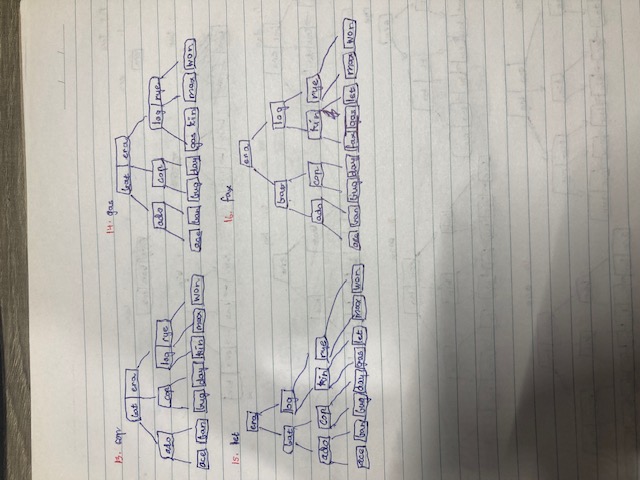 13. cop
bat era
ado cop log rye
ace ban bug day kin max won
14. gas
bat era
ado cop log rye
ace ban bug day gas kin max won
15. let
era
bat log
ado cop kin rye
ace ban bug day gas let max won
16. fax
era
bat log
ado cop kin rye
ace ban bug day fax gas let max won